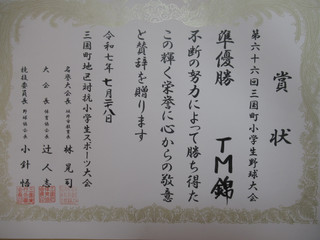 賞状
第六十六回三国町小学生野球大会
準優勝 TM錦
不断の努力によって勝ち得た
この輝く栄誉に心からの敬意
と賛辞を贈ります
令和七年七月二十八日
三国町地区対抗小学生スポーツ大会
名誉大会長 林晃司
大会長 辻人志
競技委員長 小針悟